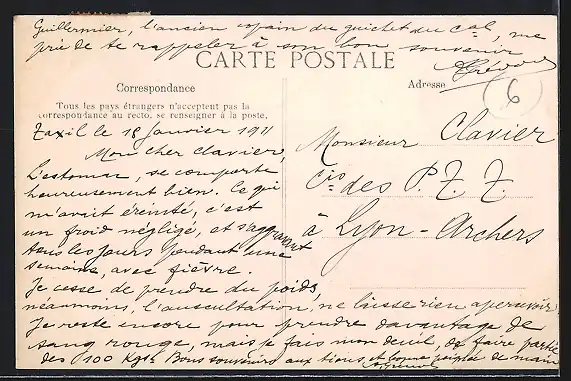 Guillermier, l'ancien copain du guichet du cal, me
prie de te rappeler à son bon souvenir
CARTE POSTALE
Correspondance
Adresse
6
Tous les pays étrangers n'acceptent pas la
correspondance au recto, se renseigner à la poste.
le 18 Janvier 1911
Mon cher Clavier,
L'estomac, se comporte
heureusement bien. Ce qui
m'avait éreinté, c'est
un froid négligé, et s'aggravant
tous les jours pendant une
semaine, avec fièvre.
Je cesse de prendre du poids,
néanmoins, l'auscultation, ne laisse rien apercevoir
Je reste encore pour prendre davantage de
sang rouge, mais je fais mon deuil, de faire partie
des 100 Kgs. Bons souvenirs aux tiens, et bonne poignée de main
Monsieur Clavier
Cis des P. T. T.
à Lyon-Archers